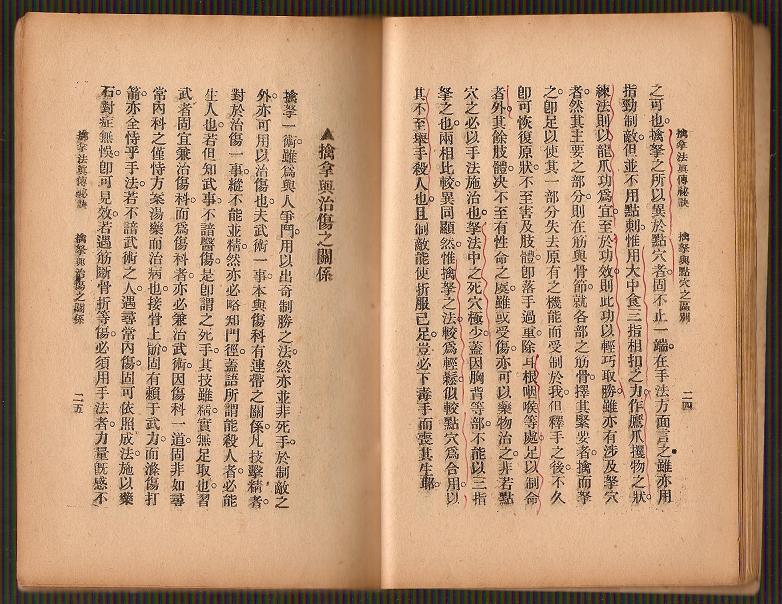 擒拿法眞傳祕訣　擒拏與點穴之區別　二四
之可也。擒拏之所以異於點穴者。固不止一端。在手法方面言之。雖亦用
指勁制敵。但並不用點刺。惟用大中食三指相扣之力。作鷹爪攫物之狀。
練法則以龍爪功爲宜。至於功效。則此功以輕巧取勝。雖亦有涉及拏穴
者。然其主要之部分。則在筋與骨節。就各部之筋骨。擇其緊要者。擒而拏
之。卽足以使其一部分失去原有之機能。而受制於我。但釋手之後。不久
卽可恢復原狀。不至害及肢體。卽落手過重。除耳根咽喉等處。足以制命
者外。其餘肢體。决不至有性命之虞。雖或受傷。亦可以藥物治之。非若點
穴之必以手法施治也。拏法中之死穴極少。蓋因胸背等部。不能以三指
拏之也。兩相比較。異同顯然。惟擒拏之法。較爲輕鬆。似較點穴爲合用。以
其不至舉手殺人也。且制敵能使折服已足。豈必下毒手而喪其生耶。
▲擒拿與治傷之關係
擒拏一術。雖爲與人爭鬥。用以出奇制勝之法。然亦並非死手。於制敵之
外。亦可用以治傷也。夫武術一事。本與傷科有連帶之關係。凡技擊精者。
對於治傷一事。縱不能並精。然亦必略知門徑。蓋語所謂能殺人者。必能
生人也。若但知武事。不諳醫傷。是卽謂之死手。其技雖精。實無足取也。習
武者固宜兼治傷科。而爲傷科者。亦必兼治武術。因傷科一道。固非如尋
常內科之僅恃方案湯藥而治病也。接骨上𩩲。固有賴于武力。而滌傷打
箭。亦全恃乎手法。若不諳武術之人。遇尋常內傷。固可依照成法。施以藥
石。對症無悞。卽可見效。若遇筋斷骨折等傷。必須用手法者。力量旣感不
擒拿法眞傳祕訣　擒拏與治傷之關係　二五